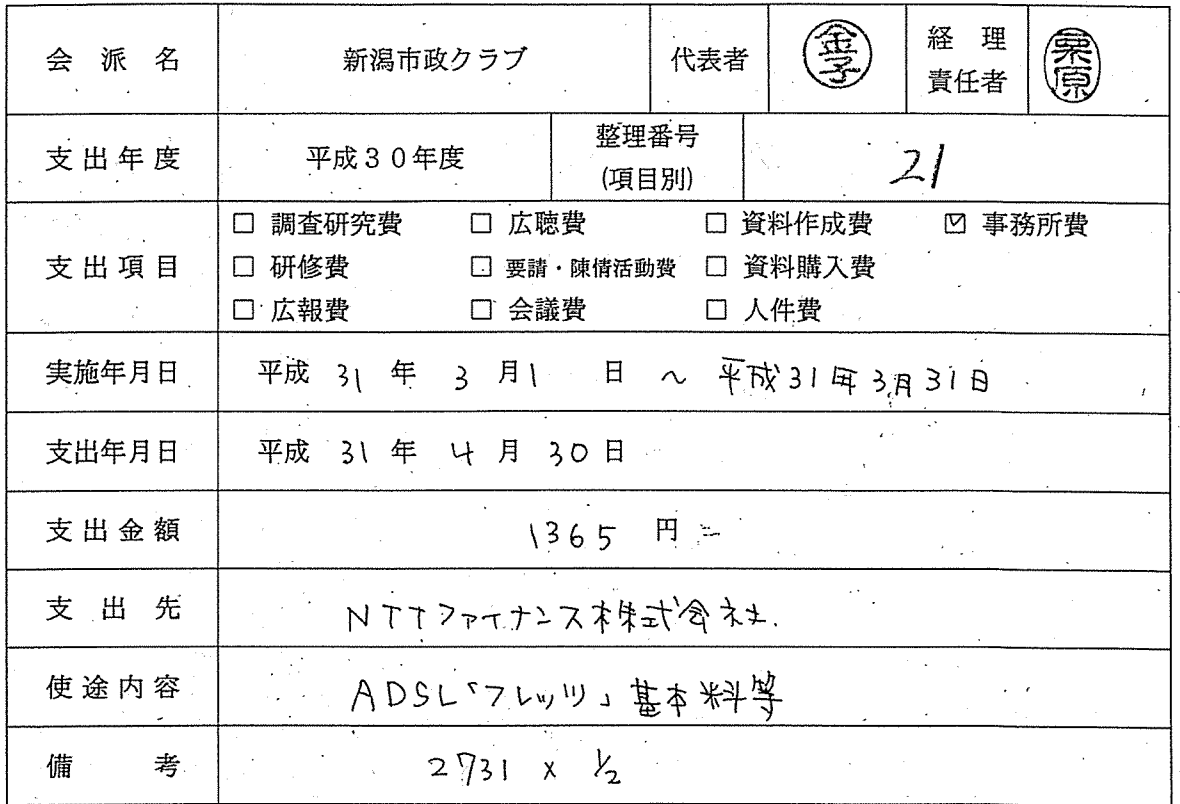 会派名 新潟市政クラブ 代表者 金子 経理責任者 栗原
支出年度 平成30年度 整理番号(項目別) 21
支出項目
□ 調査研究費 □ 広聴費 □ 資料作成費 ☑ 事務所費
□ 研修費 □ 要請・陳情活動費 □ 資料購入費
□ 広報費 □ 会議費 □ 人件費
実施年月日 平成 31 年 3 月1 日 ~ 平成31年3月31日
支出年月日 平成 31 年 4 月 30 日
支出金額 1365 円
支出先 NTTファイナンス株式会社.
使途内容 ADSL「フレッツ」基本料等
備考 2731 x 1/2